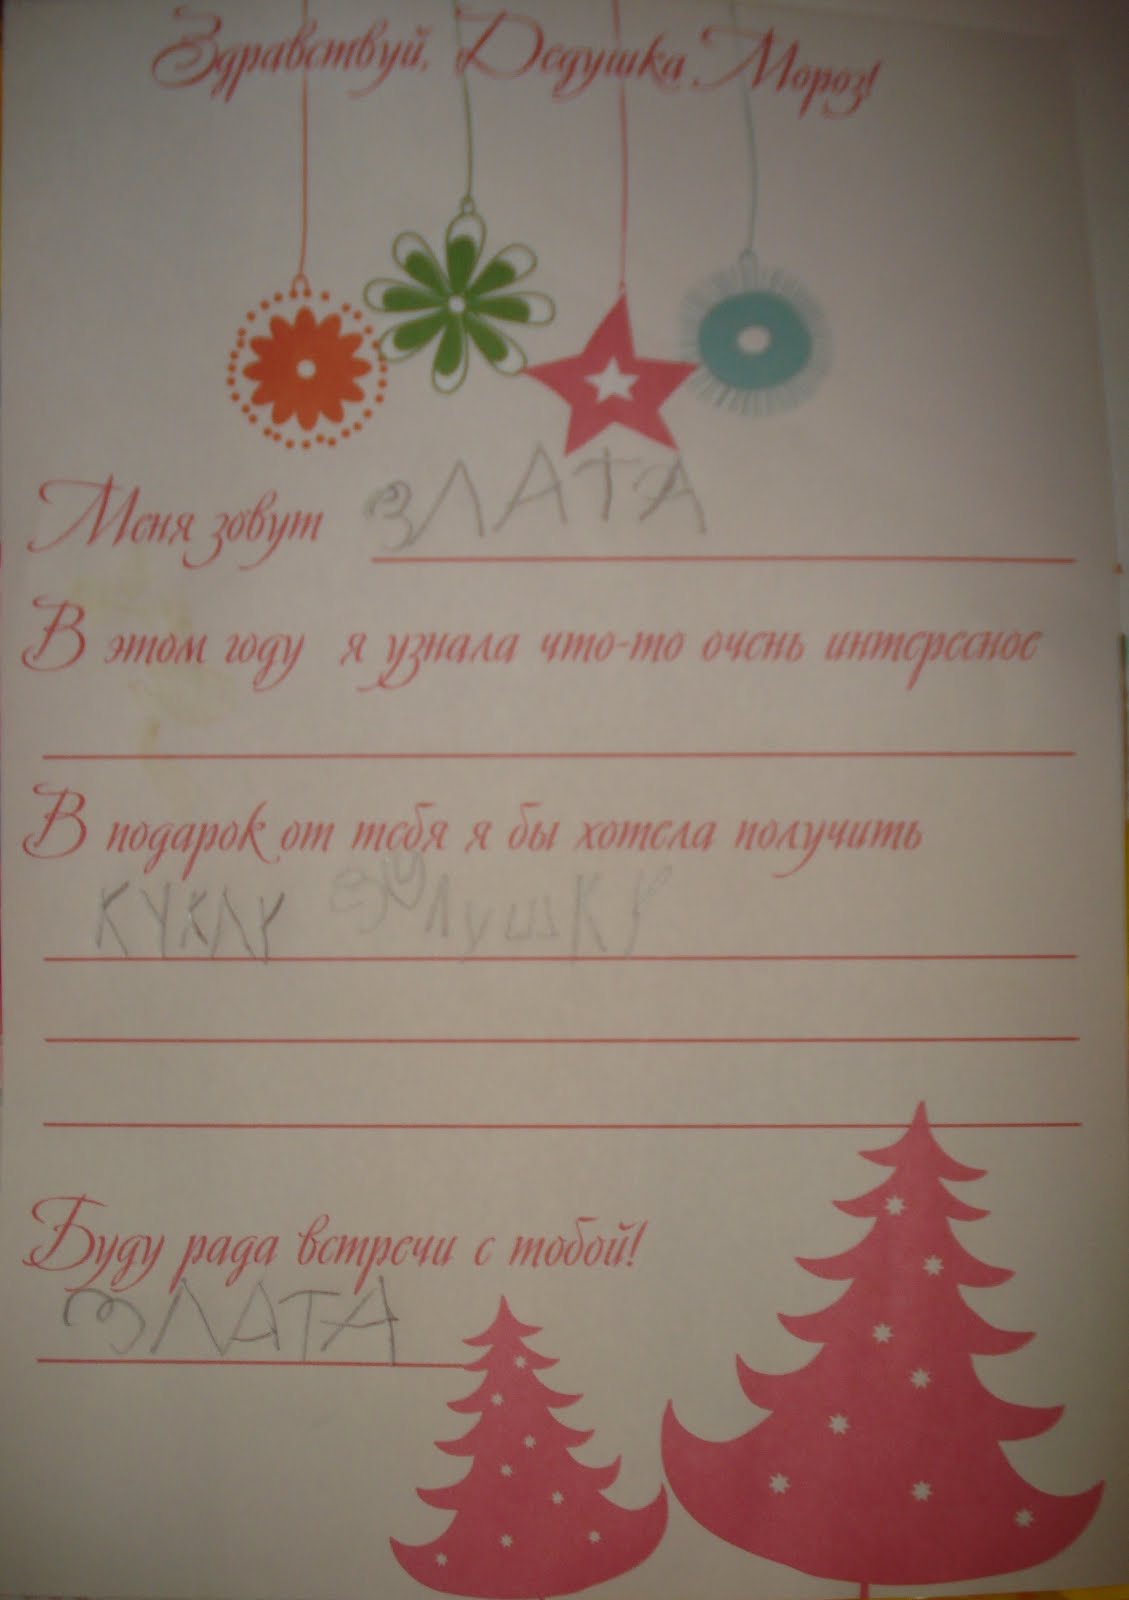 Здравствуй, Дедушка Мороз!
Меня зовут ЗЛАТА
В этом году я узнала что-то очень интересное
В подарок от тебя я бы хотела получить
КУКЛУ ЗОЛУШКУ
Буду рада встречи с тобой!
ЗЛАТА